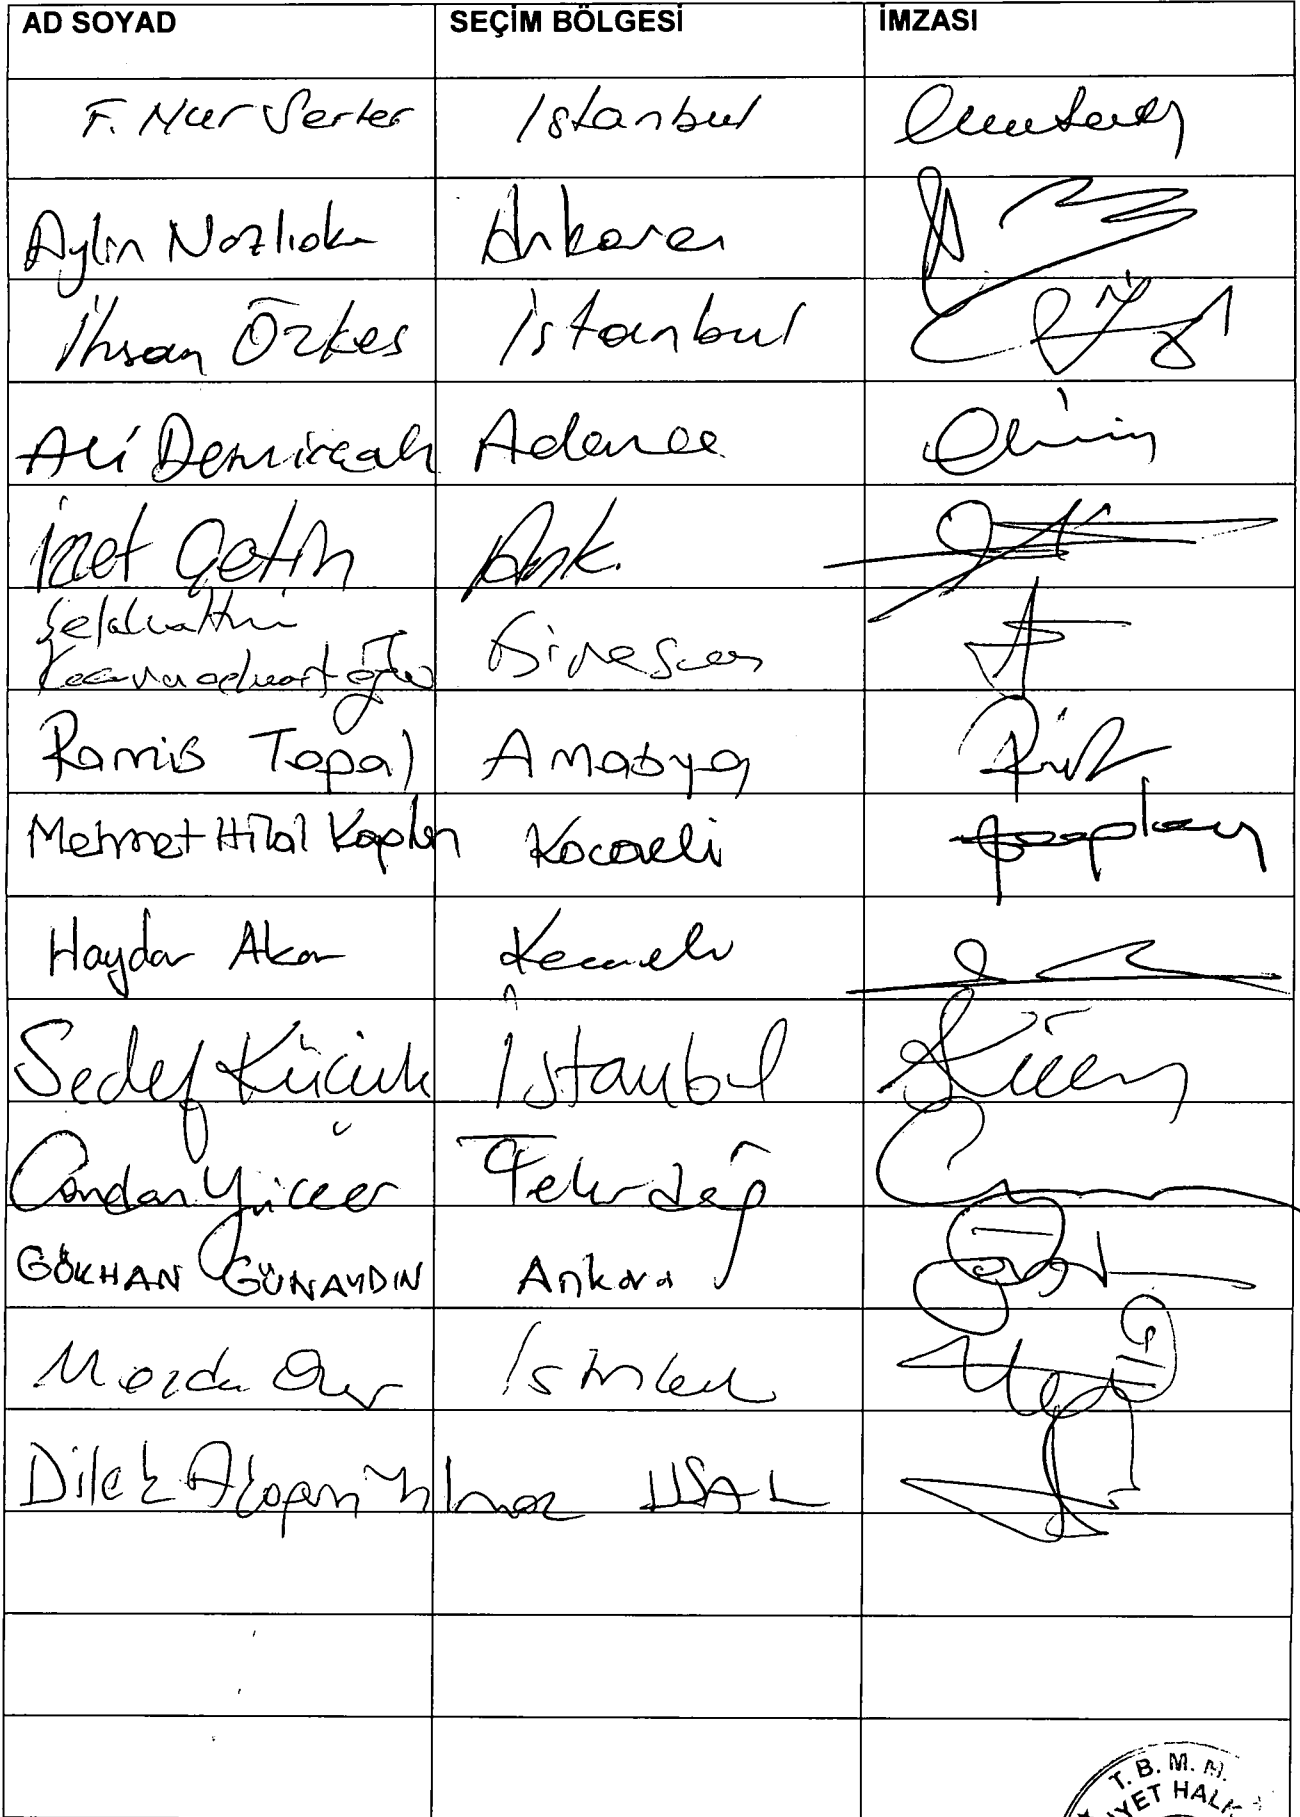 AD SOYAD SEÇİM BÖLGESİ İMZASI
F. Nur Serter Istanbul
Aylin Nazlıaka Ankara
İhsan Özkes İstanbul
Ali Demirçalı Adana
İzzet Çetin Ank.
Selahattin
Karaahmetoğlu Giresun
Ramis Topal Amasya
Mehmet Hilal Kaplan Kocaeli
Haydar Akar Kocaeli
Sedef Küçük İstanbul
Candan Yüceer Tekirdağ
GÖKHAN GÜNAYDIN Ankara
Istanbul
Dilek Akagün Yılmaz UŞAK
T. B. M. M.
YET HALK